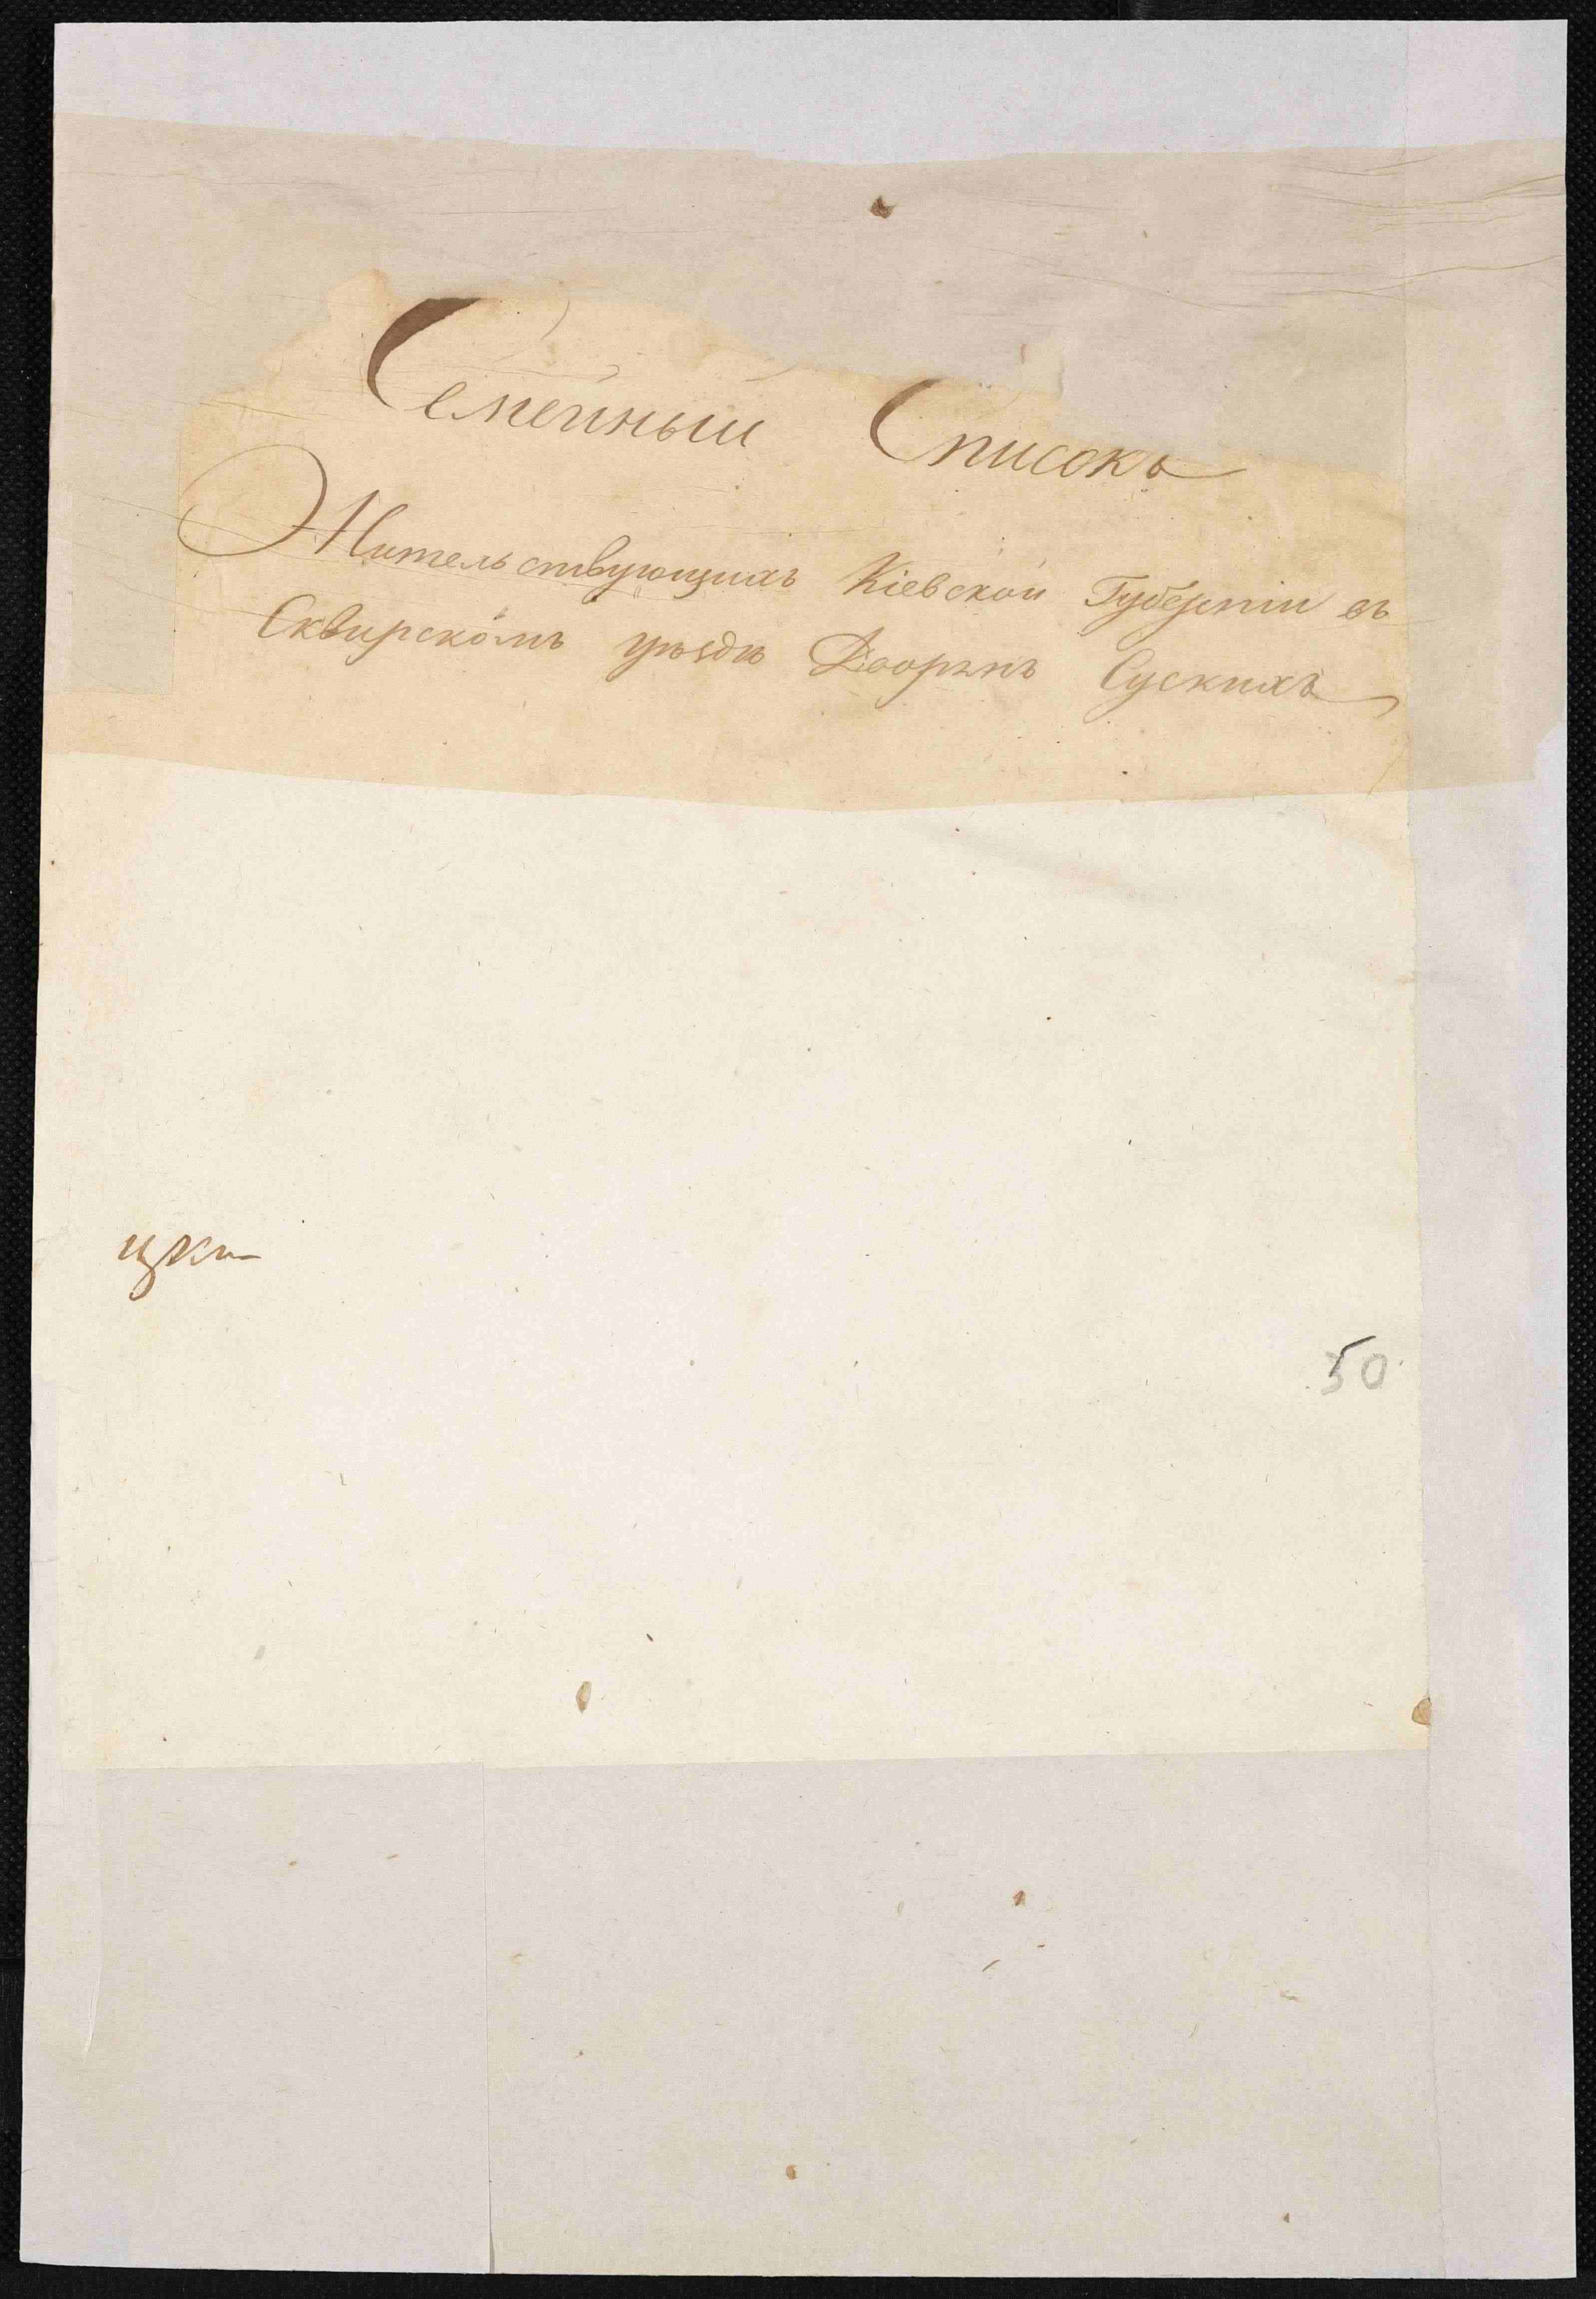 Семейный Списокъ
Жительствующихъ Кіевской Губерніи въ
Сквирскомъ уѣздѣ Дворянъ Сускихъ
50